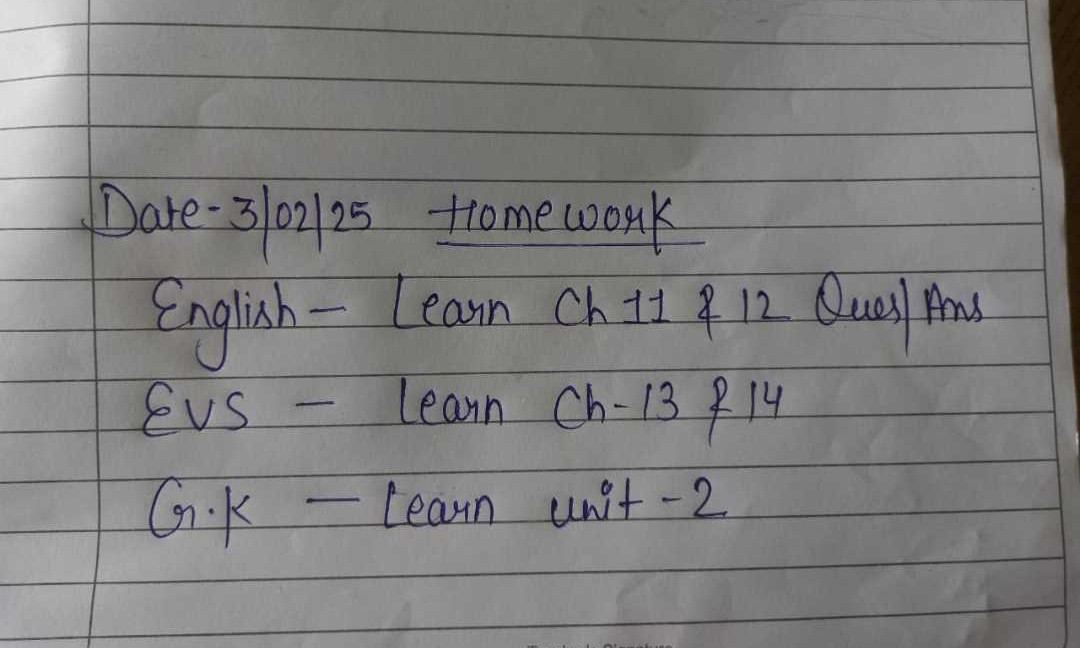 Date-3/02/25 Homework
English- Learn Ch 11 & 12 Ques/Ans
EVS - learn Ch-13 & 14
G.K - Learn unit-2